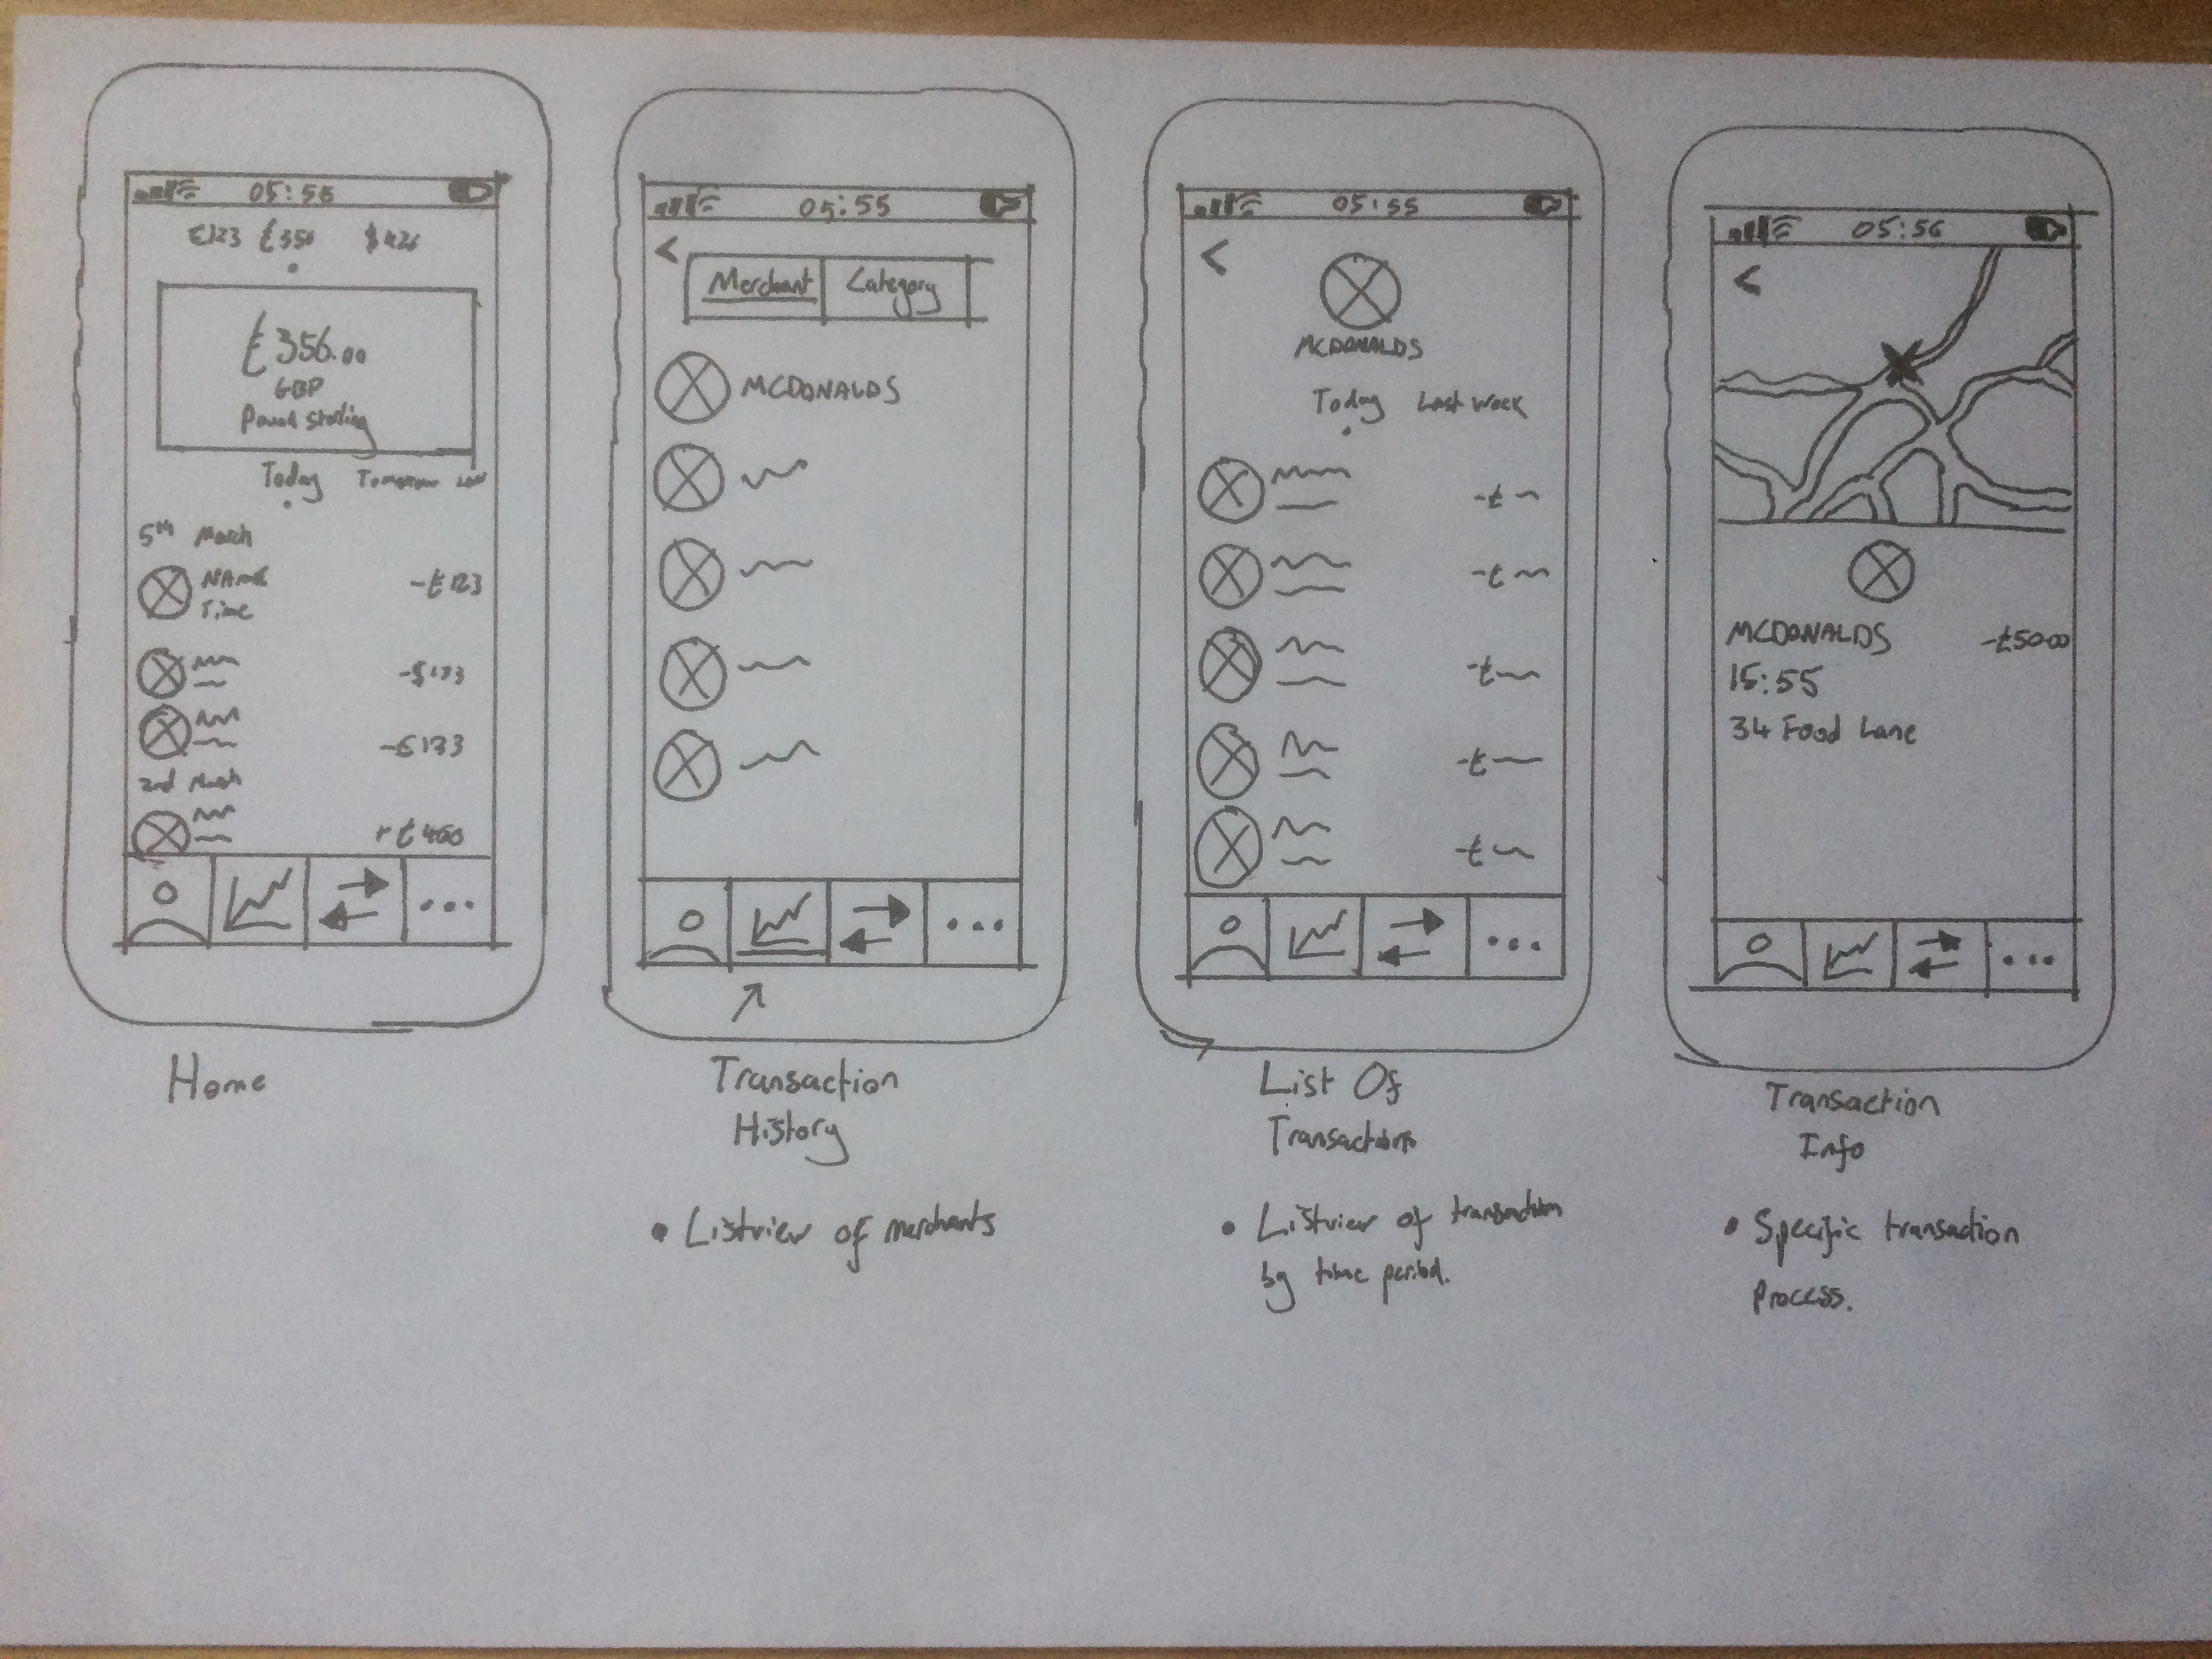 05:55
€123 £356 $426
£356.00
GBP
Pound Sterling
Today Tomorrow
5th March
NAME
Time
-£123
-$123
-€133
2nd March
+£400
Home
05:55
<
Merchant Category
MCDONALDS
...
Transaction
History
• Listview of merchants
05:55
<
MCDONALDS
Today Last Week
-£
-£
-£
-£
-£
...
List Of
Transactions
• Listview of transaction
by time period.
05:56
<
MCDONALDS -£5000
15:55
34 Food Lane
...
Transaction
Info
• Specific transaction
process.